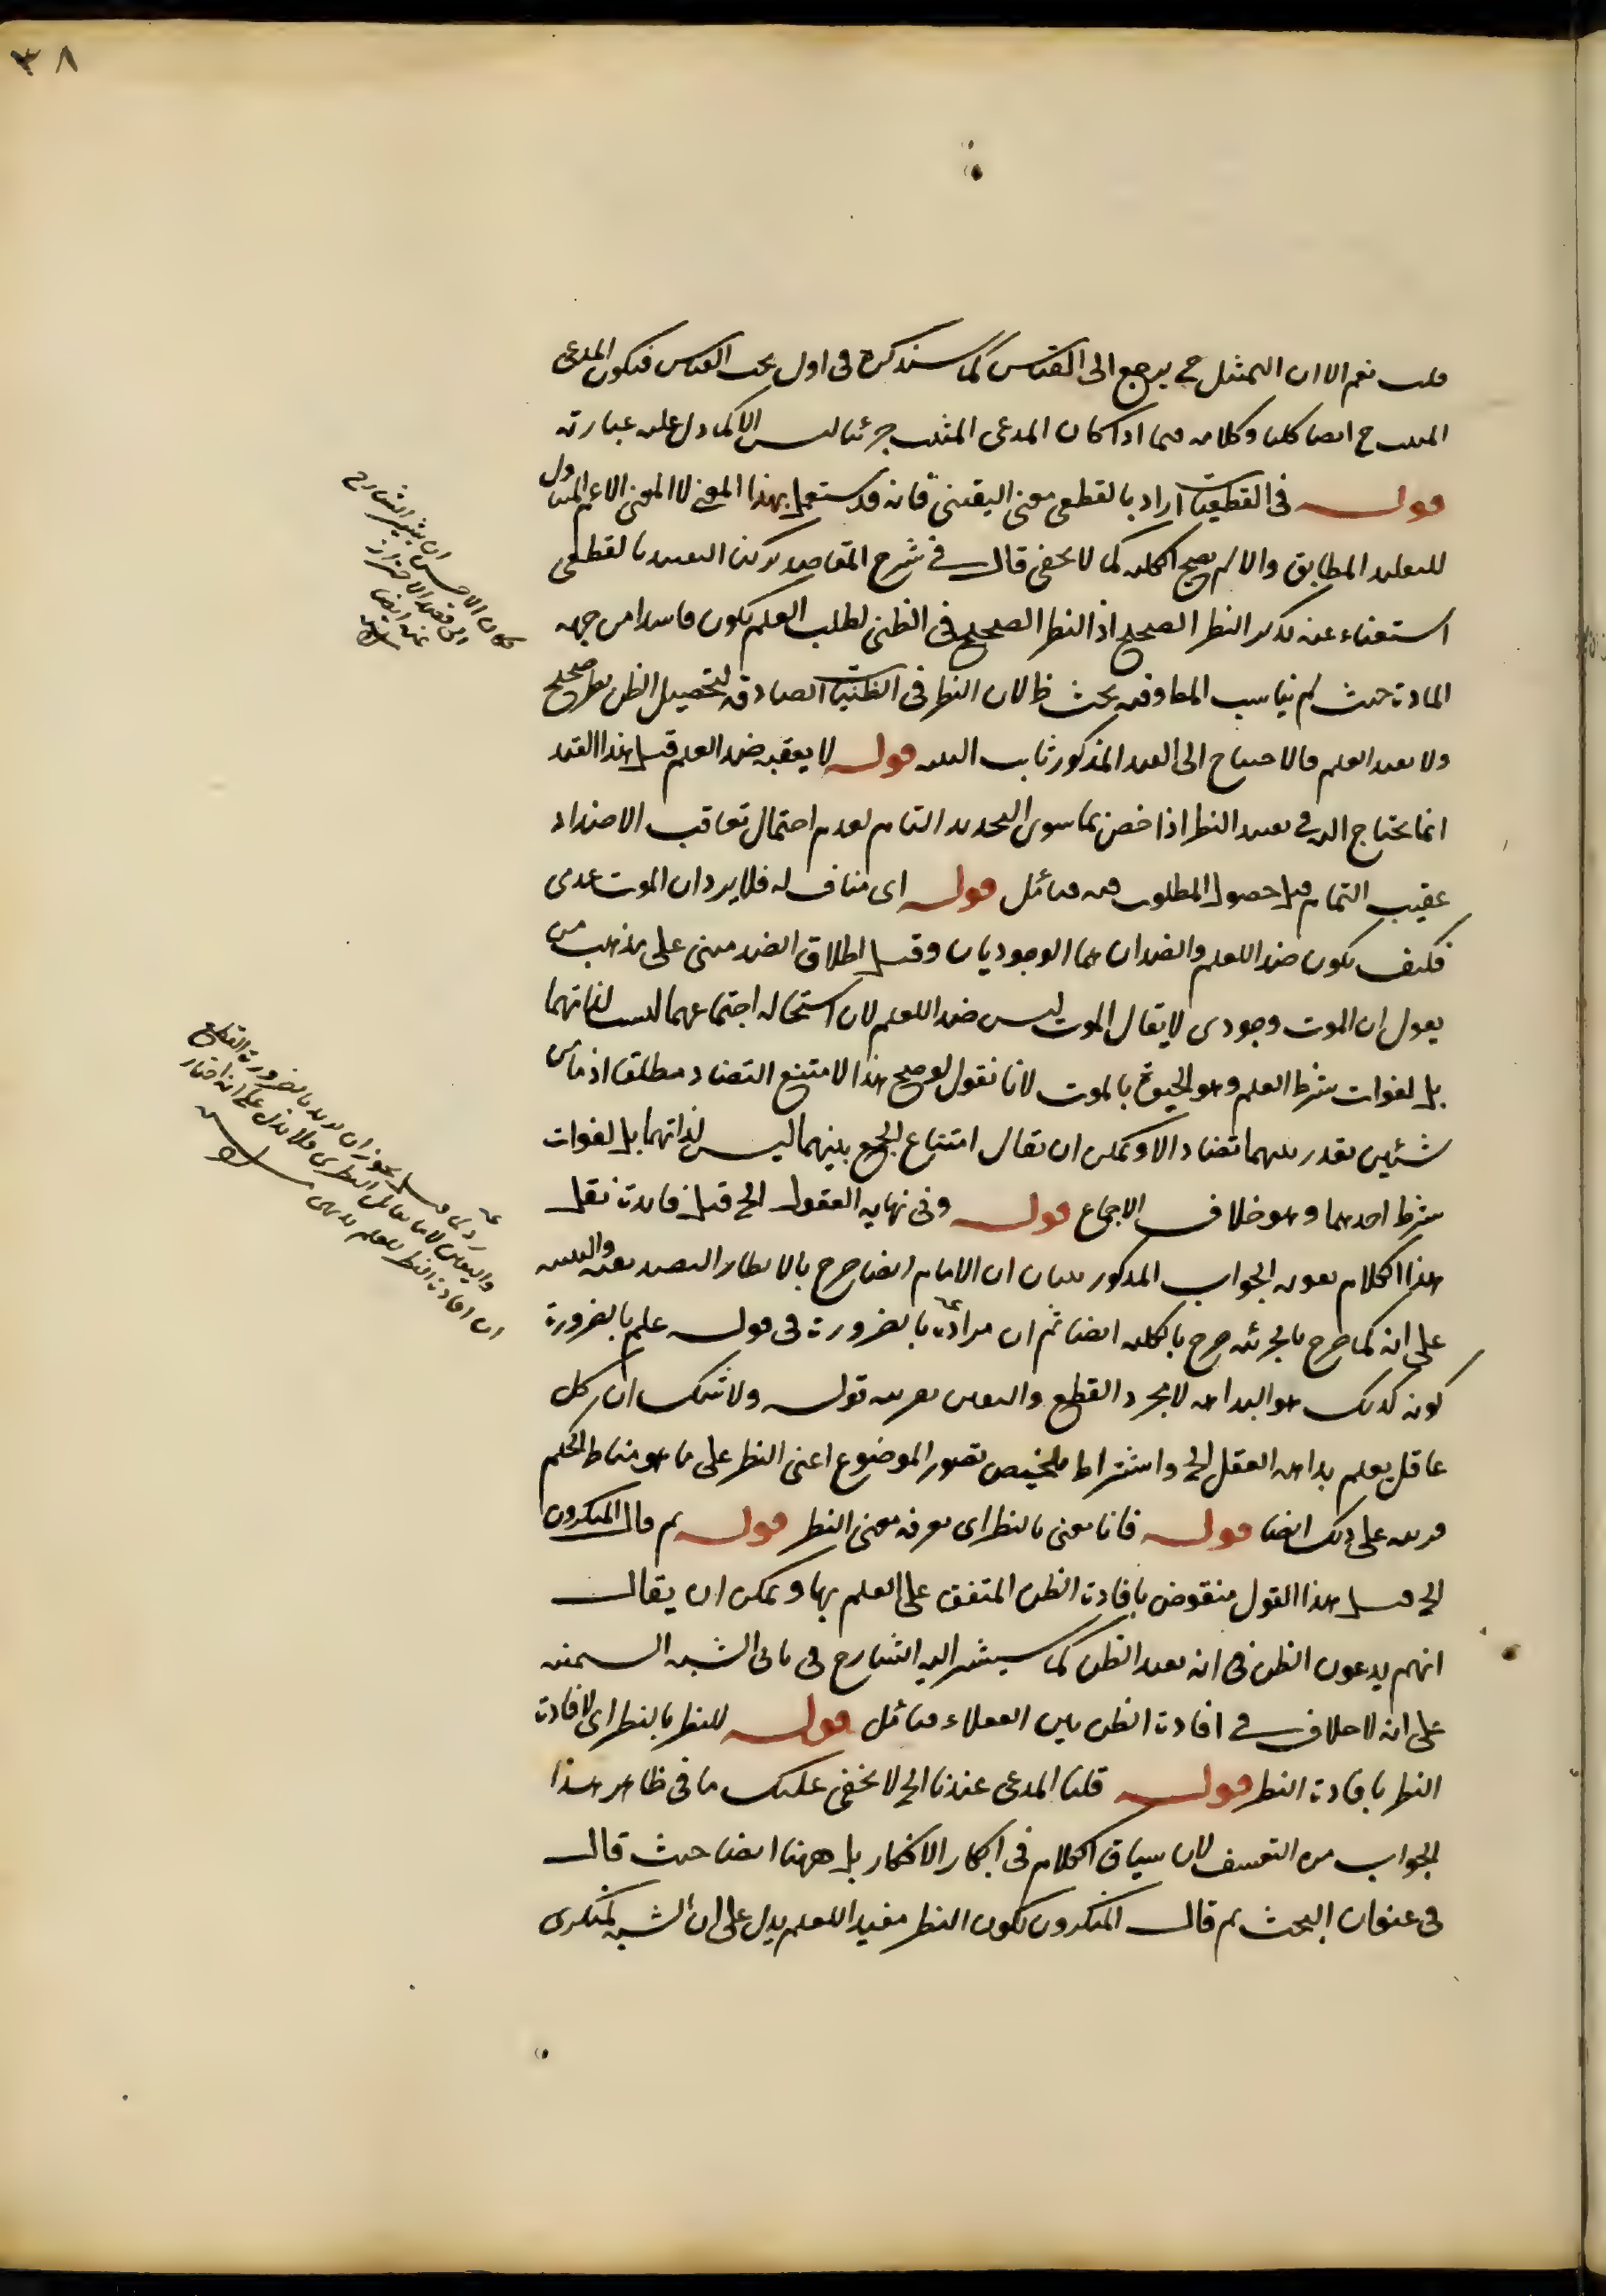 ٣٨
قلت نعم الا ان التمثيل ح يرجع الى القياس كما سنذكره فى اول بحث القياس فيكون المدعى
المثبت ح ايضا كليا وكلامه فيما اذا كان المدعى المثبت جزئيا ليس الا كما دل عليه عبارته
قوله فى القطعيات اراد بالقطعى معنى اليقينى فانه قد يستعمل بهذا المعنى لا المعنى الاعم المتناول
للتقليد المطابق والا لم يصح الكلية كما لا يخفى قال فى شرح المقاصد تركنا التقييد بالقطعى
استغناء عنه بذكر النظر الصحيح اذ النظر الصحيح فى الظنى لطلب العلم يكون فاسدا من جهة
المادة حيث لم يناسب المط وفيه بحث ظ لان النظر فى الظنيات الصادقة لتحصيل الظن نظر صحيح
ولا يفيد العلم فالاحتياج الى القيد المذكور ثابت البتة قوله لا يعقبه ضد العلم قيل هذا القيد
انما يحتاج اليه فى تقييد النظر اذا خص بما سوى التحديد التام لعدم احتمال تعاقب الاضداد
عقيب التمام قبل حصول المطلوب فيه فتأمل قوله اى مناف له فلا يرد ان الموت عدمى
فكيف يكون ضدا للعلم والضدان هما الوجوديان وقيل اطلاق الضد مبنى على مذهب من
يقول ان الموت وجودى لا يقال الموت ليس ضدا للعلم لان استحالة اجتماعهما ليست لذاتهما
بل لفوات شرط العلم وهو الحيوة بالموت لانا نقول لو صح هذا لامتنع التضاد مطلقا اذ ما من
شئين يقدر بينهما تضاد الا ويمكن ان يقال امتناع الجمع بينهما ليس لذاتهما بل لفوات
شرط احدهما وهو خلاف الاجماع قوله وفى نهاية العقول الخ قيل فائدة نقل
هذا الكلام تقوية الجواب المذكور ببيان ان الامام ايضا صرح بالانظار التصديقية والتنبيه
على انه كما صرح بالجزئية صرح بالكلية ايضا ثم ان مراده بالضرورة فى قوله علم بالضرورة
كونه كذلك هو البداهة لا مجرد القطع واليقين بقرينة قوله ولا شك ان كل
عاقل يعلم بداهة العقل الخ واشتراط تلخيص تصور الموضوع اعنى النظر على ما هو مناط الحكم
قرينة على ذلك ايضا قوله فانا نعنى بالنظر اى معرفة معنى النظر قوله ثم قال المنكرون
الخ قيل هذا القول منقوض بافادة الظن المتفق على العلم بها ويمكن ان يقال
انهم يدعون الظن فى انه يفيد الظن كما سيشير اليه الشارح فى ثانى الشبه السمنية
على انه لا خلاف فى افادة الظن بين العقلاء فتأمل قوله للنظر بالنظر اى لافادة
النظر بافادة النظر قوله قلنا المدعى عندنا الخ لا يخفى عليك ما فى ظاهر هذا
الجواب من التعسف لان سياق الكلام فى ابكار الافكار بل ههنا ايضا حيث قال
فى عنوان البحث ثم قال المنكرون لكون النظر مفيدا للعلم يدل على ان الشبه لمنكرى
كان الاحسن ان يشير الشارح
الى قصد الاحتراز
عنه ايضا
قيل يجوز ان يريد بالضرورة القطع
واليقين لا ما يقابل النظرى فلا يدل على انه اختار
ان افادة النظر للعلم بديهى